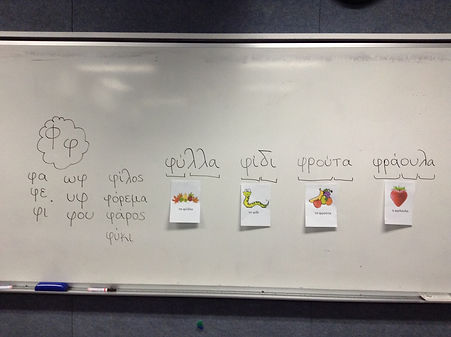 Φ φ
φα ωφ φίλος
φε. υφ φόρεμα
φι φου φάρος
φύκι
φύλλα φίδι φρούτα φράουλα
τα φύλλα το φίδι τα φρούτα η φράουλα